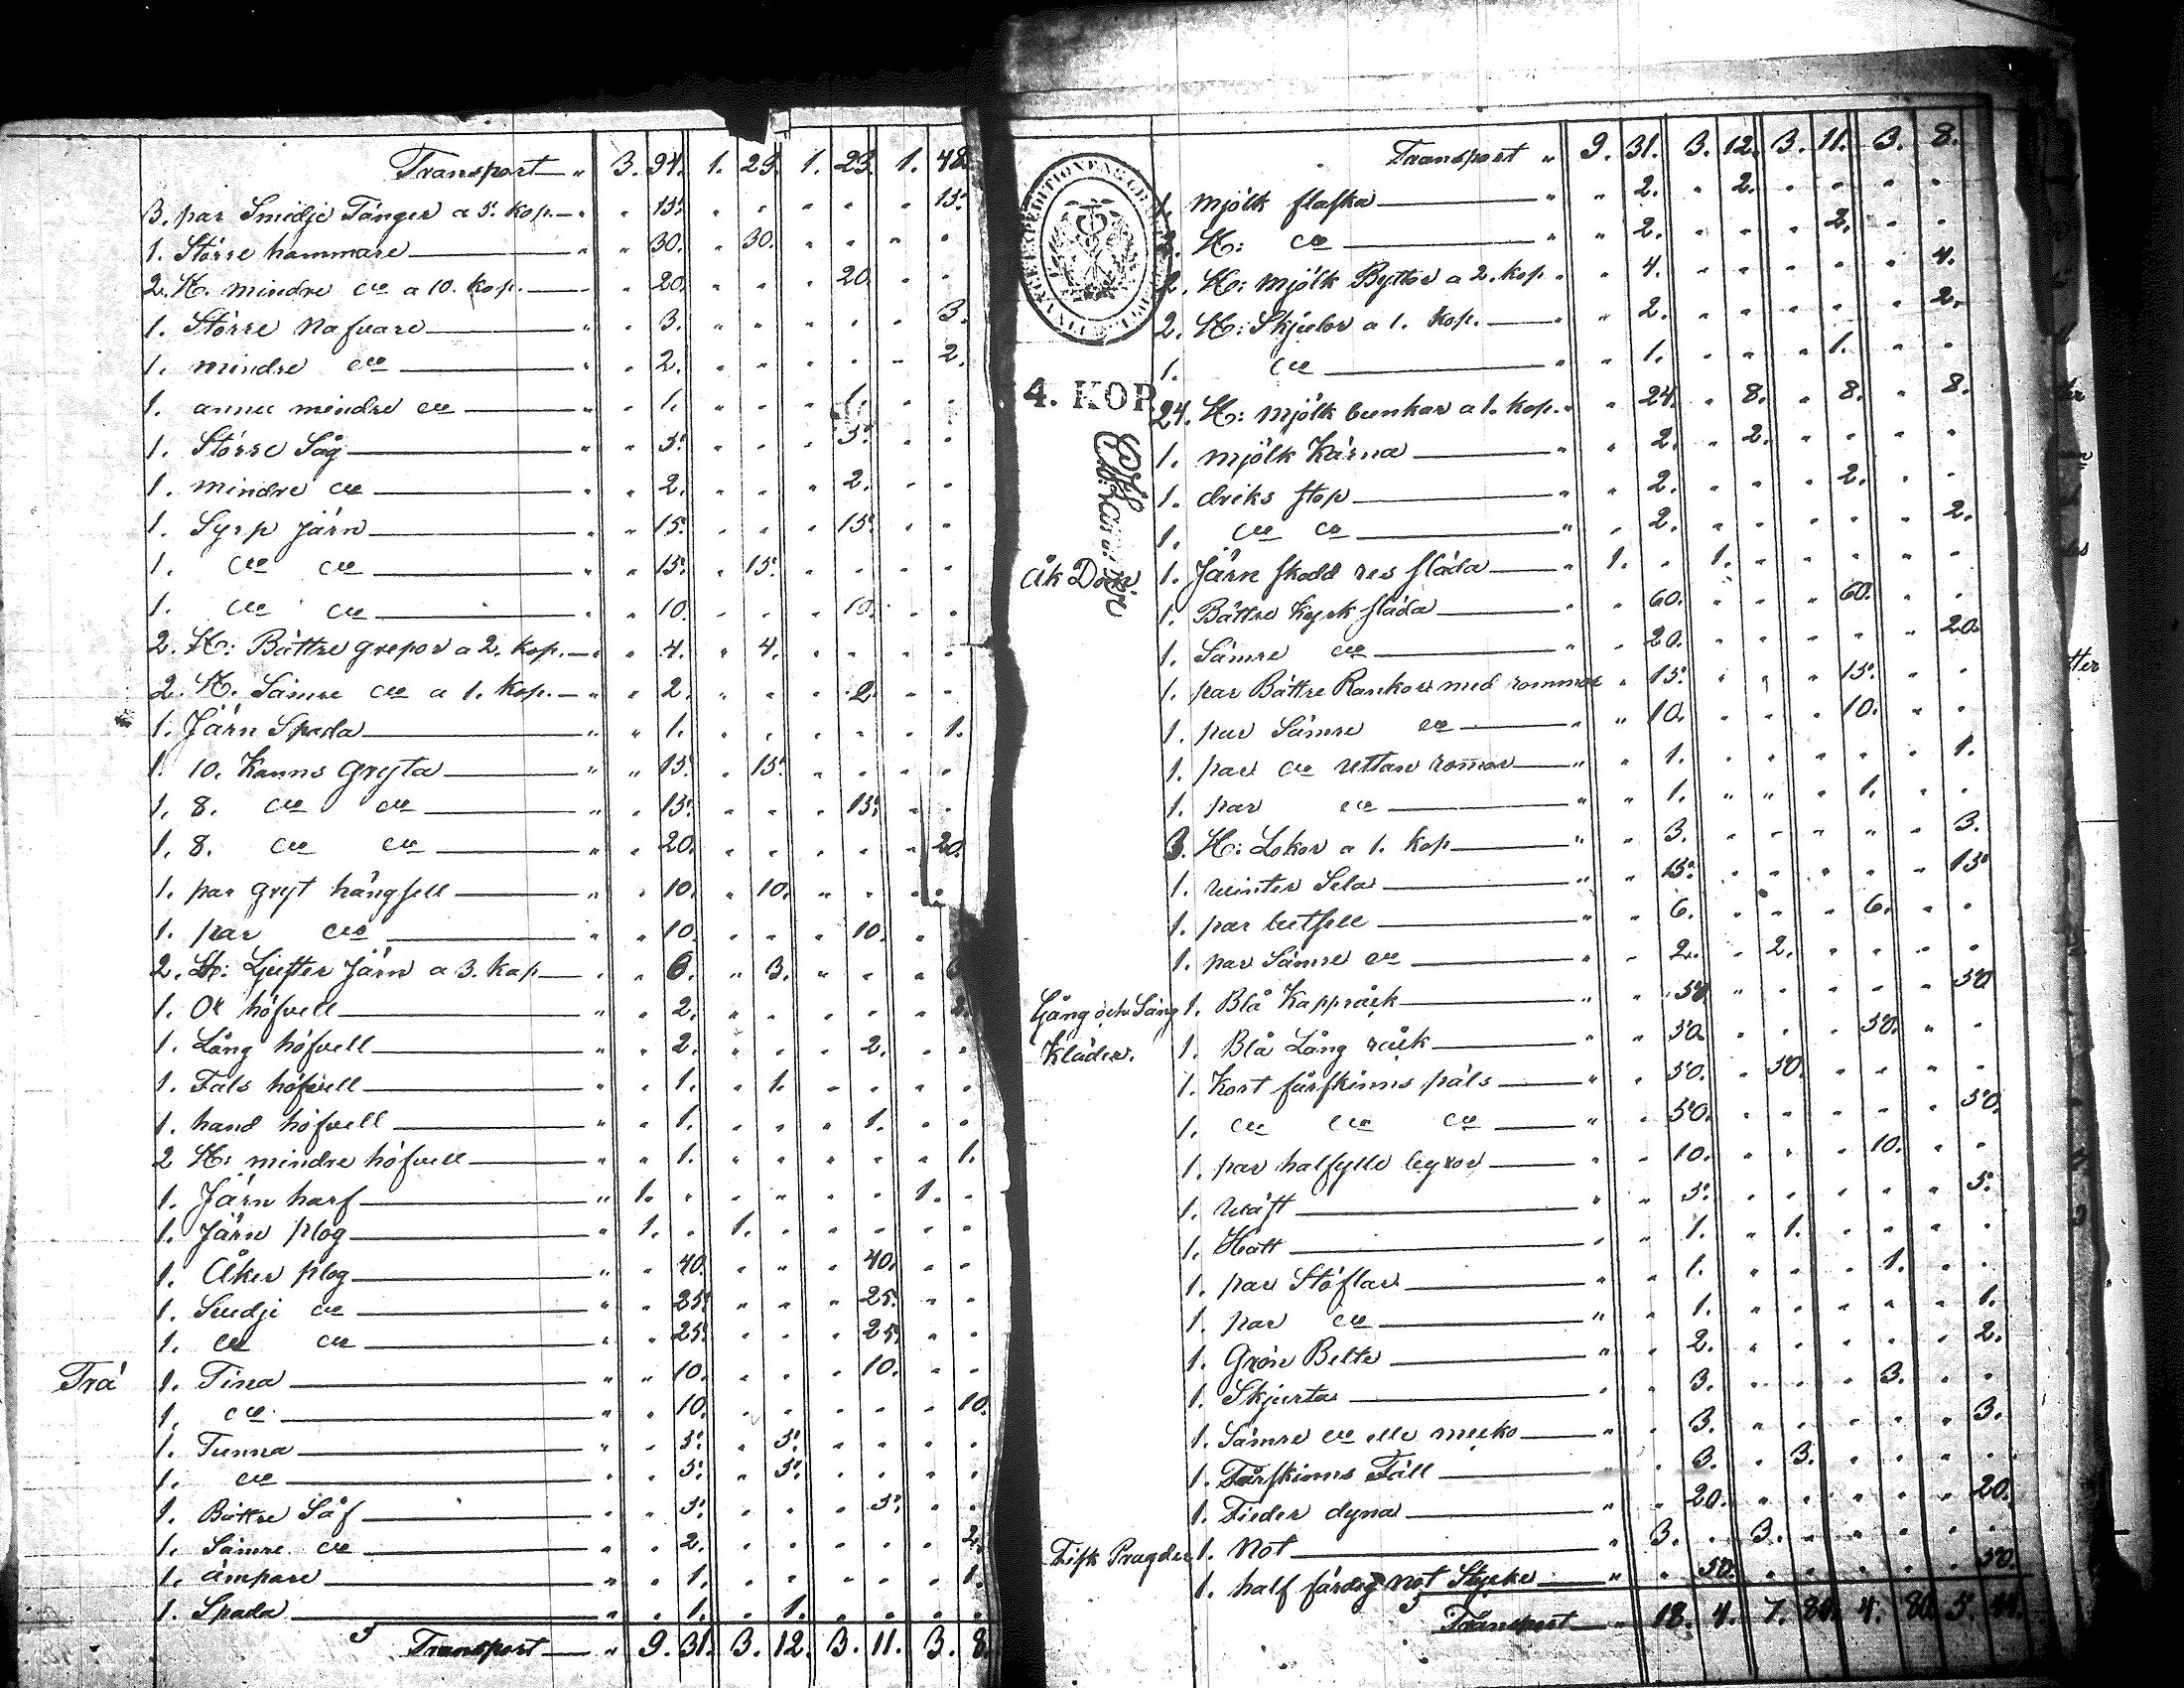 Transport " 3. 94. 1. 29. 1. 23. 1. 48.
3. par Smidje Tånger a 5. kop. " " 15. " " " " " 15.
1. Större hammare " " 30. " 30. " " " "
2. St. mindre do a 10. kop. " " 20. " " " 20. " "
1. Större Nafvare " " 3. " " " " " 3.
1. mindre do " " 2. " " " " " 2.
1. annu mindre do " " 1. " " " 1. " "
1. Större Såg " " 5. " " " 5. " "
1. mindre do " " 2. " " " 2. " "
1. Syrp Järn " " 15. " " " 15. " "
1. do do " " 15. " 15. " " " "
1. do do " " 10. " " " 10. " "
2. St: Bättre grepor a 2. kop. " " 4. " 4. " " " "
2. St. Sämre do a 1. kop. " " 2. " " " 2. " "
1. Järn Spada " " 1. " " " " " 1.
1. 10. Kanns Gryta " " 15. " 15. " " " "
1. 8. do do " " 15. " " " 15. " "
1. 8. do do " " 20. " " " " " 20.
1. par gryt hängsell " " 10. " 10. " " " "
1. par do " " 10. " " " 10. " "
2. St: Ljuster Järn a 3. kop " " 6. " 3. " " "
1. Ok höfvell " " 2. " " " " " 2.
1. Lång höfvell " " 2. " " " 2. " "
1. Fals höfvell " " 1. " 1. " " " "
1. hand höfvell " " 1. " " " 1. " "
2 St: mindre höfvell " " 1. " " " " " 1.
1. Järn harf " 1. " " " " " 1. "
1. Järn plog " 1. " 1. " " " " "
1. Åker plog " " 40. " " " 40. " "
1. Smedje do " " 25. " " " 25. " "
1. do do " " 25. " " " 25. " "
Trä 1. Tina " " 10. " " " 10. " "
1. do " " 10. " " " " " 10.
1. Tunna " " 5. " 5. " " " "
1. do " " 5. " 5. " " " "
1. Bättre Såf " " 5. " " " 5. " "
1. Sämre do " " 2. " " " " " 2.
1. ämpare " " 1. " " " " " 1.
1. Spada " " 1. " 1. " " " "
Transport " 9. 31. 3. 12. 3. 11. 3. 8.
Transport " 9. 31. 3. 12. 3. 11. 3. 8.
1. mjölk flaska " " 2. " 2. " " " "
2. St: do " " 2. " " " 2. " "
2. St: mjölk Byttor a 2. kop " " 4. " " " " " 4.
2. St: Skjulor a 1. kop. " " 2. " " " " " 2.
1. do " " 1. " " " 1. " "
4. KOP.
24. St: mjölk bunkar a 1. kop. " " 24. " 8. " 8. " 8.
1. mjölk Kärna " " 2. " 2. " " " "
1. driks stop " " 2. " " " 2. " "
1. do do " " 2. " " " " " 2.
Åk Don 1. Järn skodd res släda " 1. " 1. " " " " "
1. Bättre kyrk släda " " 60. " " " 60. " "
1. Sämre do " " 20. " " " " " 20.
1. par Bättre Rankor med rommor " 15. " " " 15. " "
1. par Sämre do " " 10. " " " 10. " "
1. par do uttan romor " " 1. " " " " " 1.
1. par do " " 1. " " " 1. " "
3. St: Lokor a 1. kop " " 3. " " " " " 3.
1. winter Sela " " 15. " " " " " 15
1. par betsell " " 6. " " " 6. " "
1. par Sämre do " " 2. " 2. " " " "
Gång och Säng 1. Blå Kappråck " " 50 " " " " " 50
Kläder. 1. Blå Lång råck " " 50. " " " 50. " "
1. Kort fårskinns päls " " 50. " 50. " " " "
1. do do do " " 50. " " " " " 50.
1. par halfylle byxor " " 10. " " " 10. " "
1. wäst " " 5. " " " " " 5.
1. Hatt " " 1. " 1. " " " "
1. par Stöflar " " 1. " " " 1. " "
1. par do " " 1. " " " " " 1.
1. Grön Belte " " 2. " " " " " 2.
1. Skjorta " " 3. " " " 3. " "
1. Sämre do elle mecko " " 3. " " " " " 3.
1. Fårskinns Fäll " " 3. " 3. " " " "
1. Fieder dyna " " 20. " " " " " 20.
Fisk Bragder 1. Not " 3. " 3. " " " " "
1. half färdig not Stycke " " 50. " " " " " 50.
Transport " 18. 4. 7. 80. 4. 80. 5. 44.